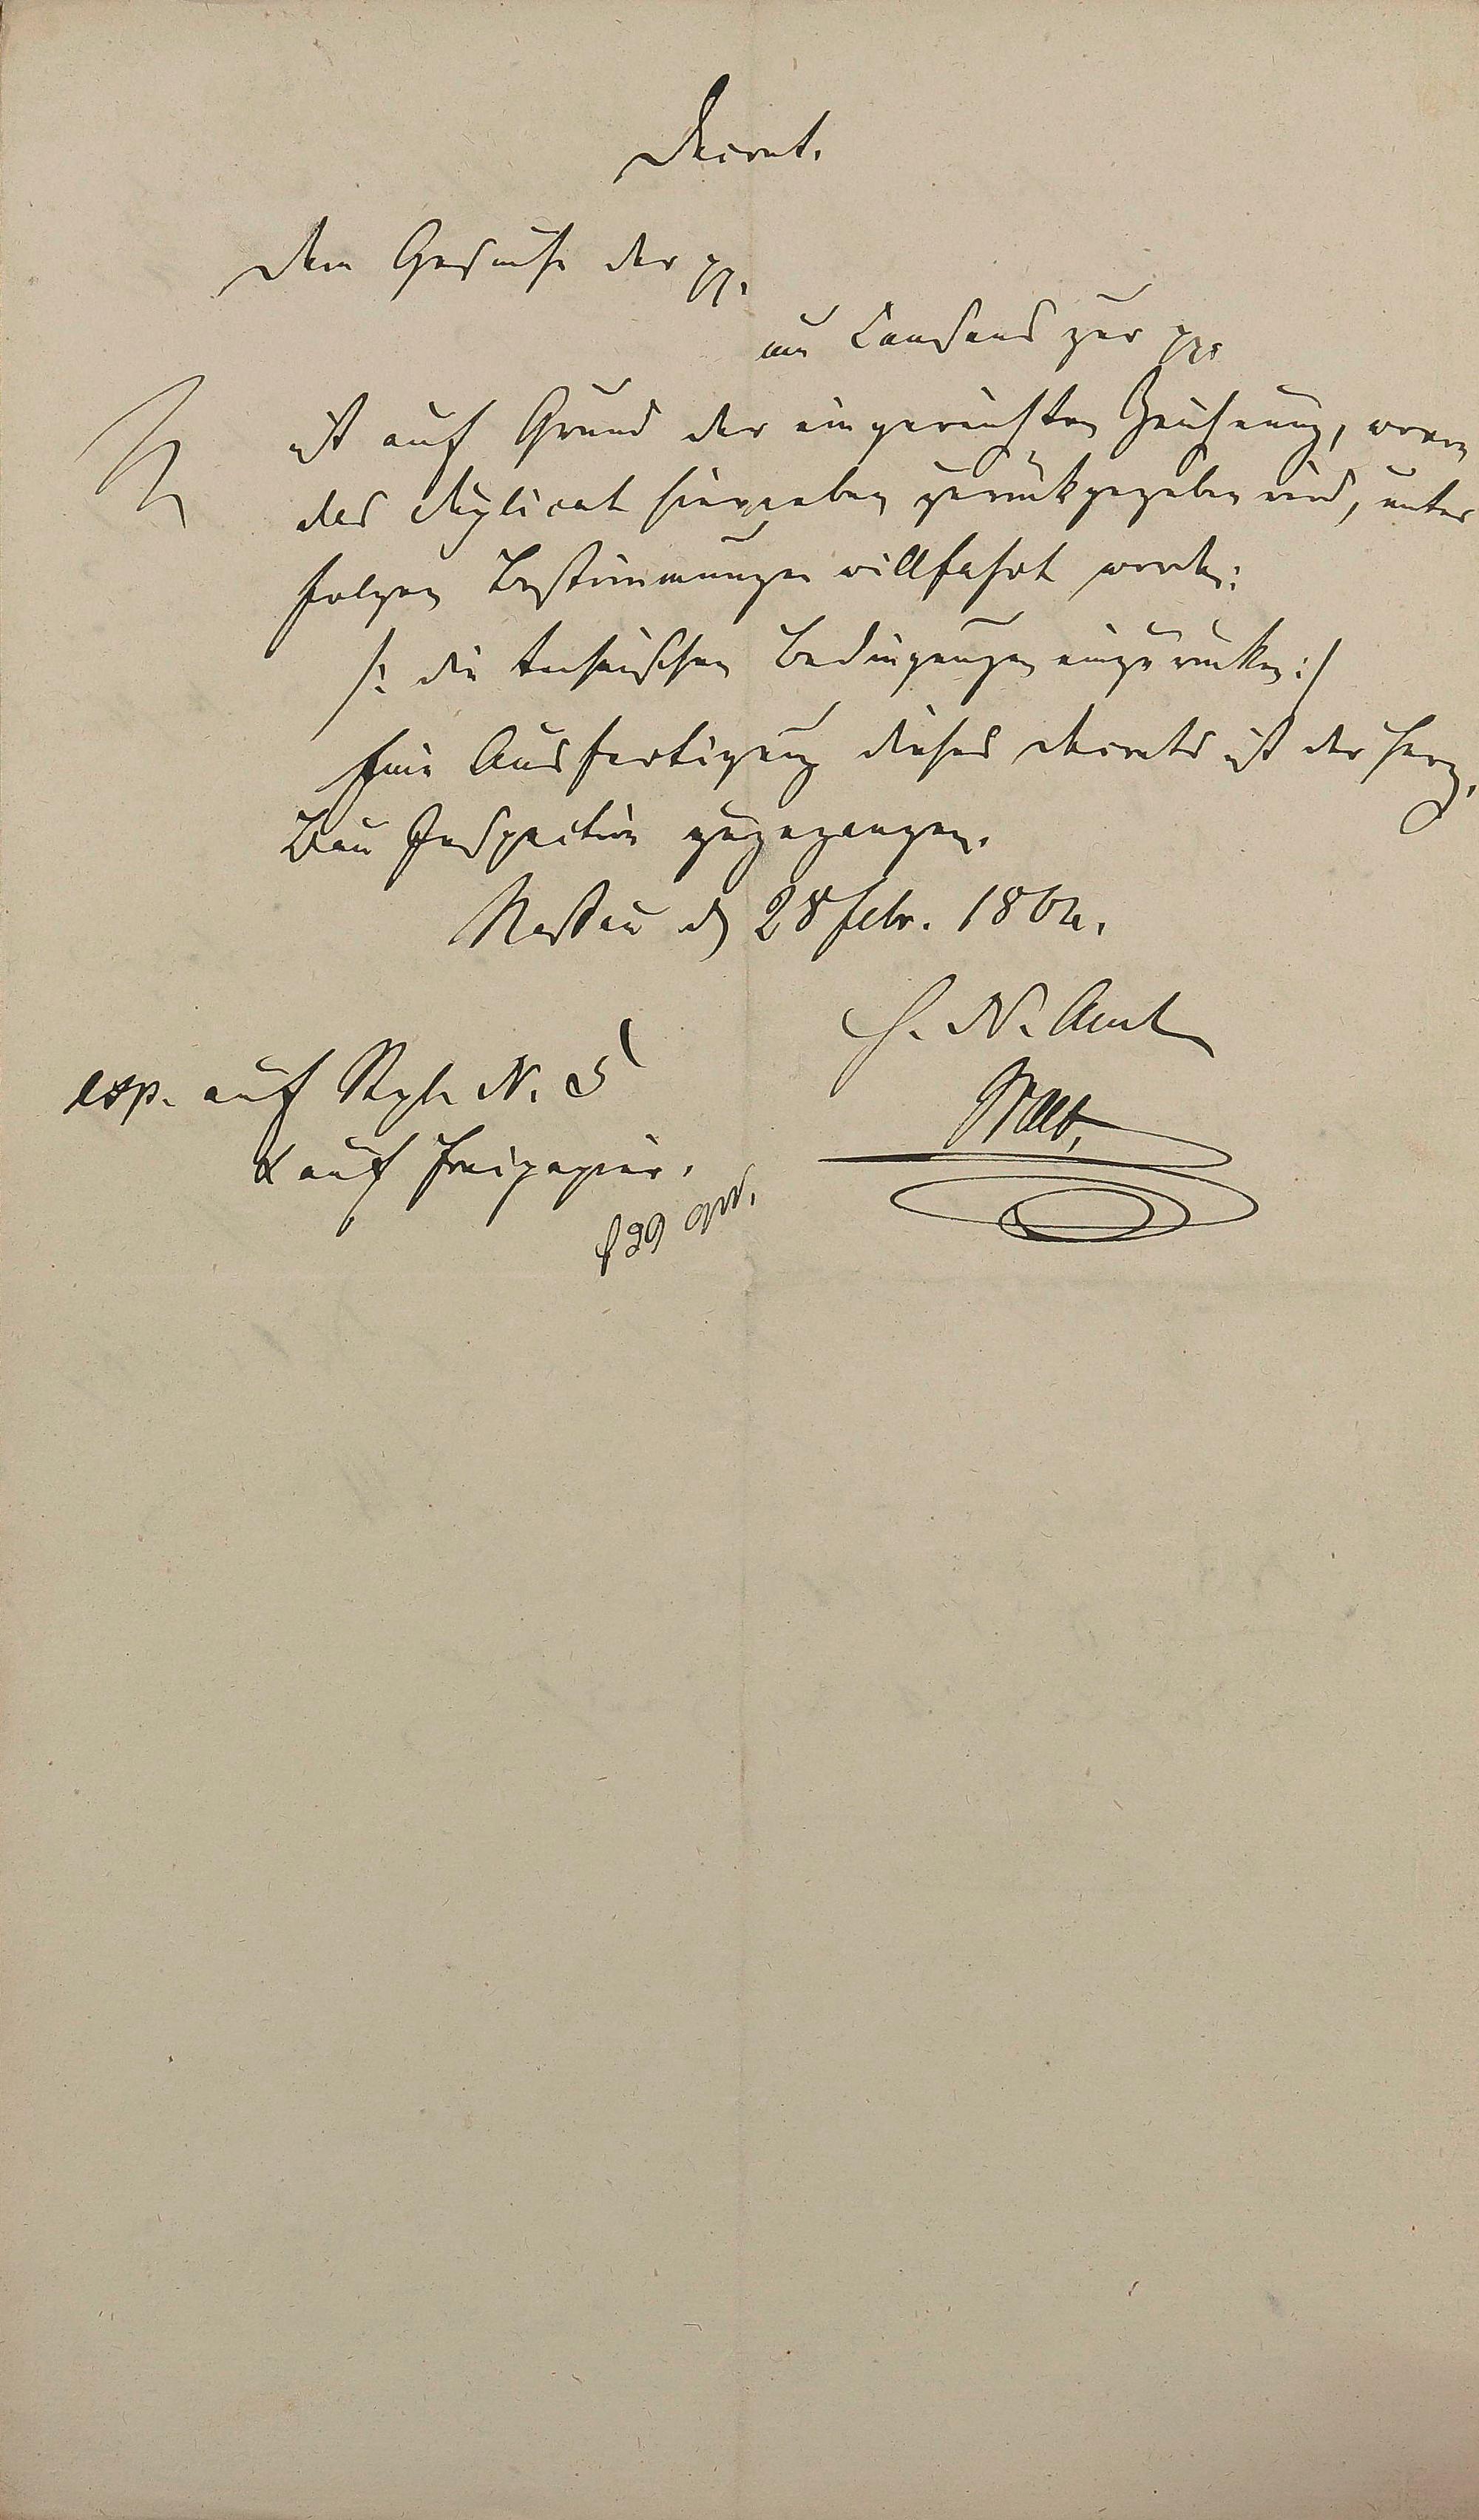 Decret.
Dem Gesuche der pp.
um Consens zur pp.
ist auf Grund der eingereichten Zeichnung, wovon
das Duplicat hierneben zurückgegeben wird, unter
folgen Bestimmungen willfahrt worden:
/: die technischen Bedingungen einzurücken :/
Eine Ausfertigung dieses Decrets ist der Herz.
Bau Inspection zugegangen.
Nassau d 28 Febr. 1862.
H. N. Amt
exp. auf Stpl. N. 5
& auf Freipapier.